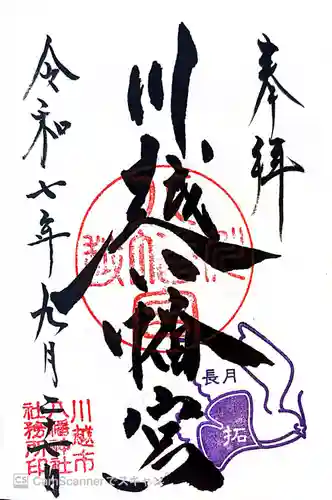 奉拝
川越八幡宮
令和七年九月二十七日
長月
拓
川越市
八幡神社
社務所印
CS CamScanner でスキャン